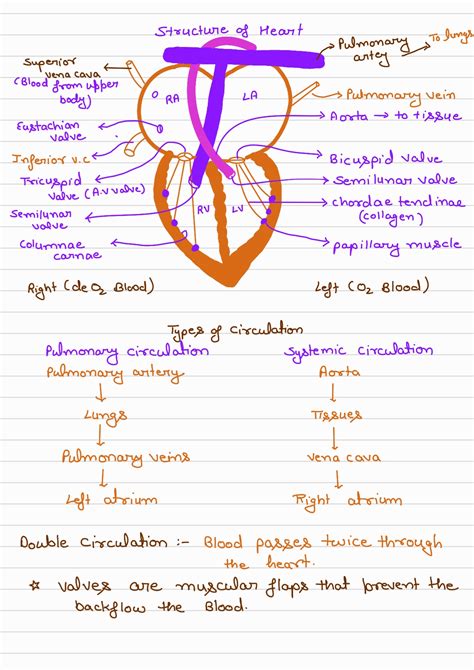 Structure of Heart
Pulmonary artey
To lungs
Superior vena cava
(Blood from upper body)
RA
LA
Pulmonary vein
Aorta → to tissue
Eustachian valve
Inferior v.c
Bicuspid valve
Tricuspid valve (A.V valve)
Semilunar valve
RV
LV
chordae tendinae (collagen)
Semilunar valve
Columnae carnae
papillary muscle
Right (de O2 Blood)
Left (O2 Blood)
Types of circulation
Pulmonary circulation
Systemic circulation
Pulmonary artery
Aorta
Lungs
Tissues
Pulmonary veins
vena cava
Left atrium
Right atrium
Double Circulation :- Blood passes twice through
the heart.
☆ valves are muscular flaps that prevent the
backflow the Blood.